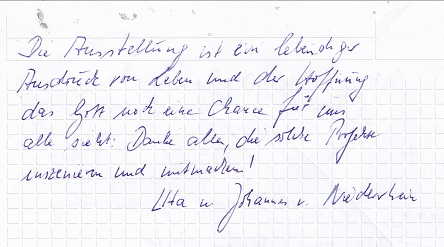 Die Ausstellung ist ein lebendiger
Ausdruck von Leben und der Hoffnung
das Gott noch eine Chance für uns
alle sieht! Danke allen, die solche Projekte
inszenieren und mitmachen!
Uta u. Johannes v. Niederrhein